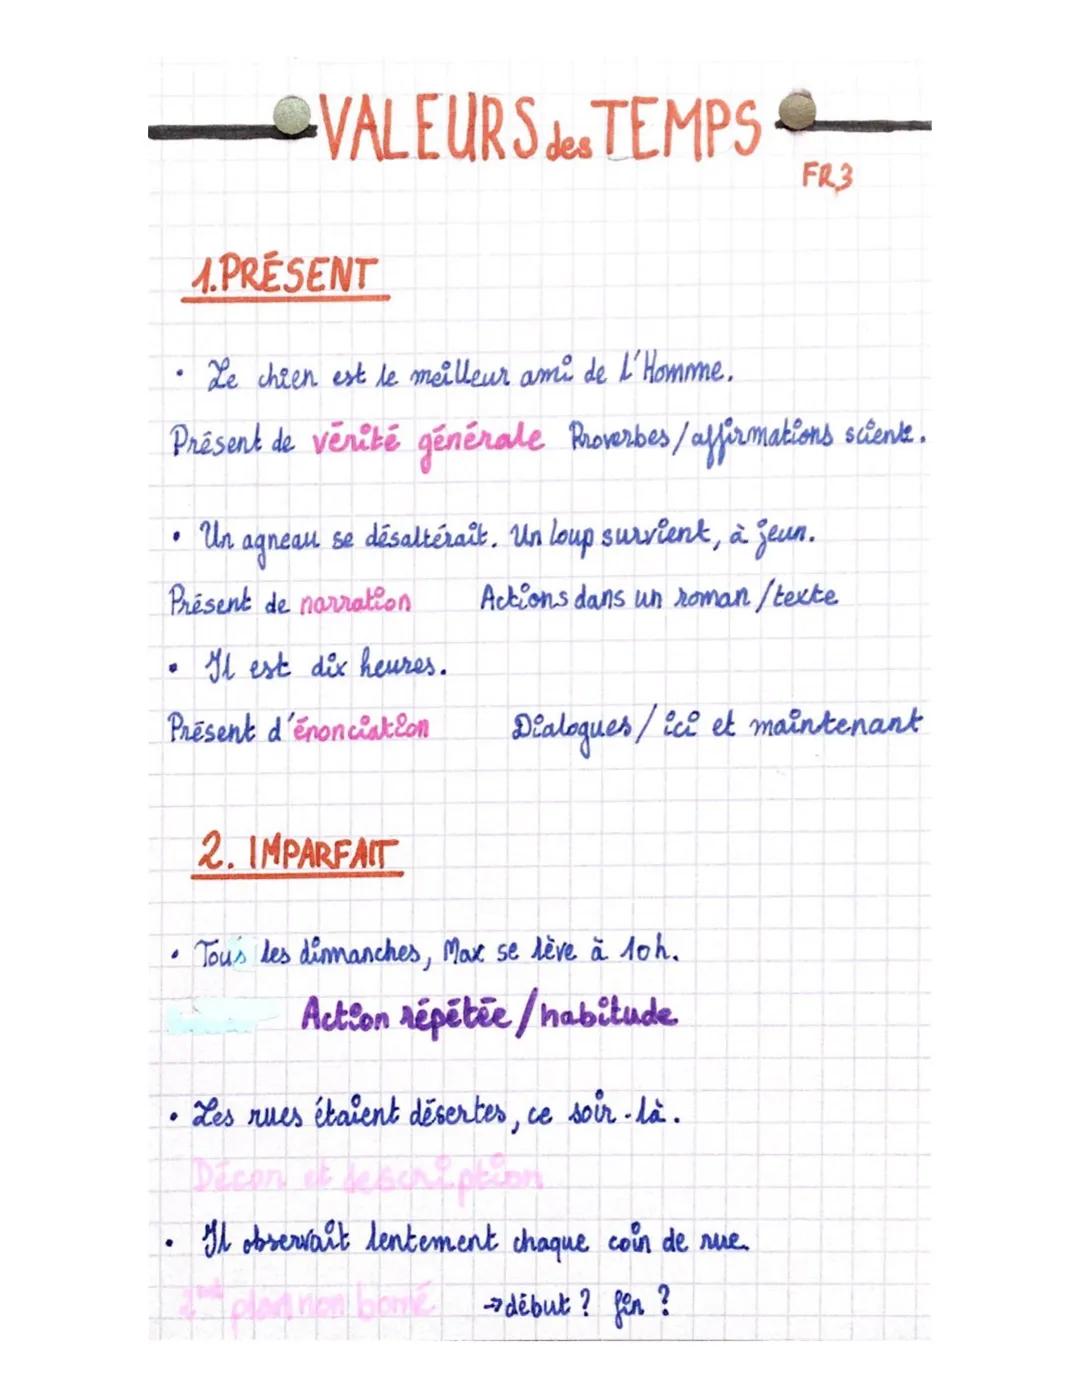 VALEURS des TEMPS
FR3
1. PRÉSENT
• Le chien est le meilleur ami de l'Homme.
Présent de vérité générale Proverbes / affirmations scient.
• Un agneau se désaltérait. Un loup survient, à jeun.
Présent de narration Actions dans un roman / texte
• Il est dix heures.
Présent d'énonciation Dialogues / ici et maintenant
2. IMPARFAIT
• Tous les dimanches, Max se lève à 10h.
Action répétée / habitude
• Les rues étaient désertes, ce soir-là.
Décor et description
• Il observait lentement chaque coin de rue.
2nd plan non borné → début ? fin ?